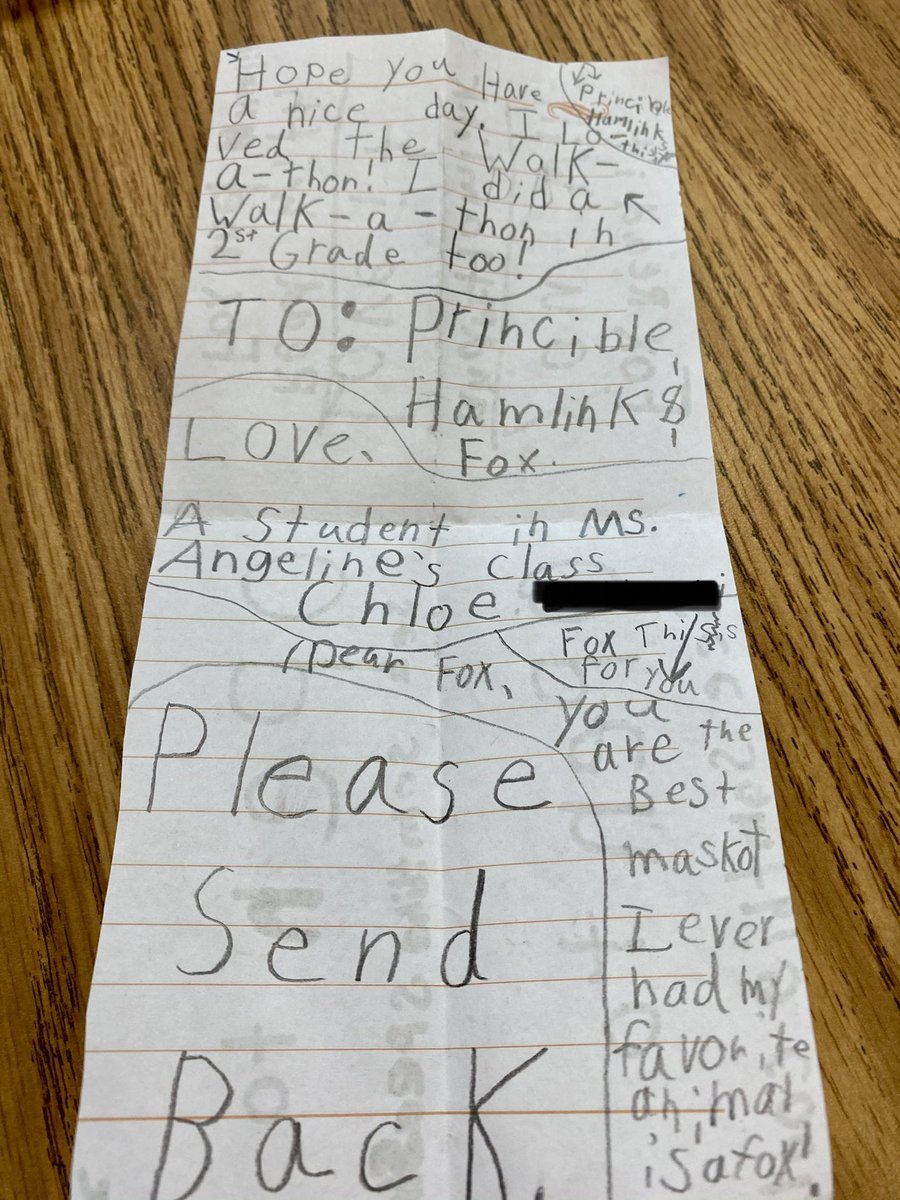 Hope you Have
a nice day. I Lo-
ved the Walk-
a-thon! I did a
Walk-a-thon in
2st Grade too!
Princible
Hamlihk
this
TO: Princible
Hamlihk &
Fox.
Love,
A Student in Ms.
Angeline's class
Chloe
Dear Fox,
Fox This is
for you
you
are the
Best
maskot
I ever
had my
favorite
animal
is a fox!
Please
Send
Back.